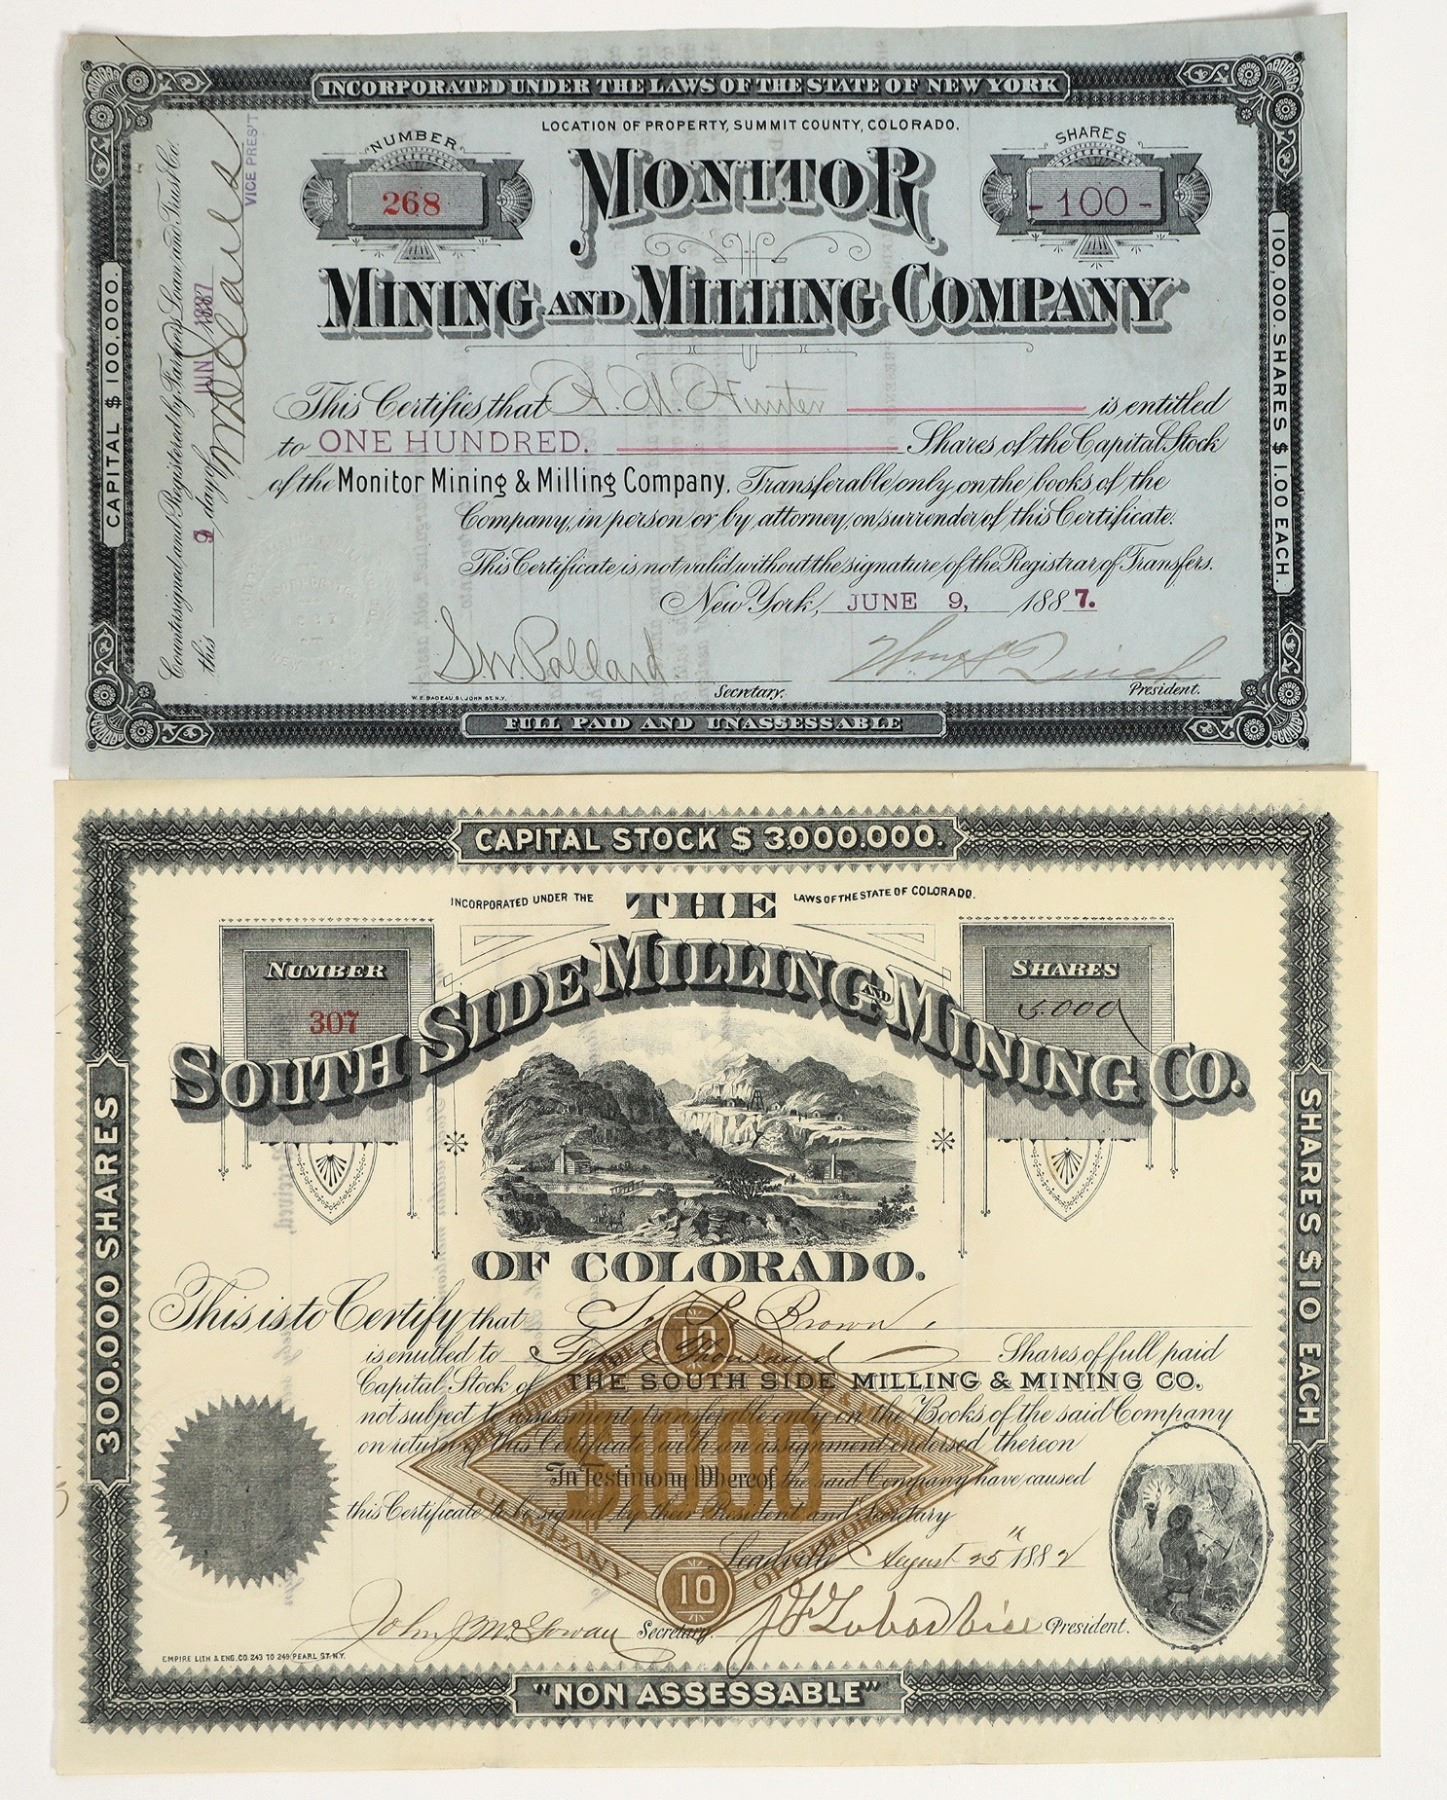 INCORPORATED UNDER THE LAWS OF THE STATE OF NEW YORK
LOCATION OF PROPERTY, SUMMIT COUNTY, COLORADO.
NUMBER
268
SHARES
- 100 -
MONITOR
MINING AND MILLING COMPANY
This Certifies that Hunter is entitled
to ONE HUNDRED. Shares of the Capital Stock
of the Monitor Mining & Milling Company, Transferable only on the books of the
Company, in person or by attorney, on surrender of this Certificate.
This Certificate is not valid without the signature of the Registrar of Transfers.
New York, JUNE 9, 1887.
S.W. Pollard
Secretary.
President.
W. E. BADEAU, 51 JOHN ST. N.Y.
FULL PAID AND UNASSESSABLE
CAPITAL $ 100,000.
100,000. SHARES $ 1.00 EACH.
Countersigned and Registered by Farmers Loan and Trust Co.
this 9 day of JUN 1887
VICE PRES'T
CAPITAL STOCK $ 3.000.000.
INCORPORATED UNDER THE
LAWS OF THE STATE OF COLORADO.
THE
SOUTH SIDE MILLING AND MINING CO.
NUMBER
307
SHARES
5.000
OF COLORADO.
This is to Certify that Brown
is entitled to Five Thousand Shares of full paid
Capital Stock of THE SOUTH SIDE MILLING & MINING CO.
not subject to assessment, transferable only on the Books of the said Company
on return of this Certificate with an assignment endorsed thereon
In Testimony Whereof the said Company have caused
this Certificate to be signed by their President and Secretary
Leadville August 25th 1882
Secretary.
Vice President.
EMPIRE LITH & ENG. CO. 243 TO 249 PEARL ST. N.Y.
"NON ASSESSABLE"
300.000 SHARES
SHARES $10 EACH
10
$1000
COMPANY
OF COLORADO
10